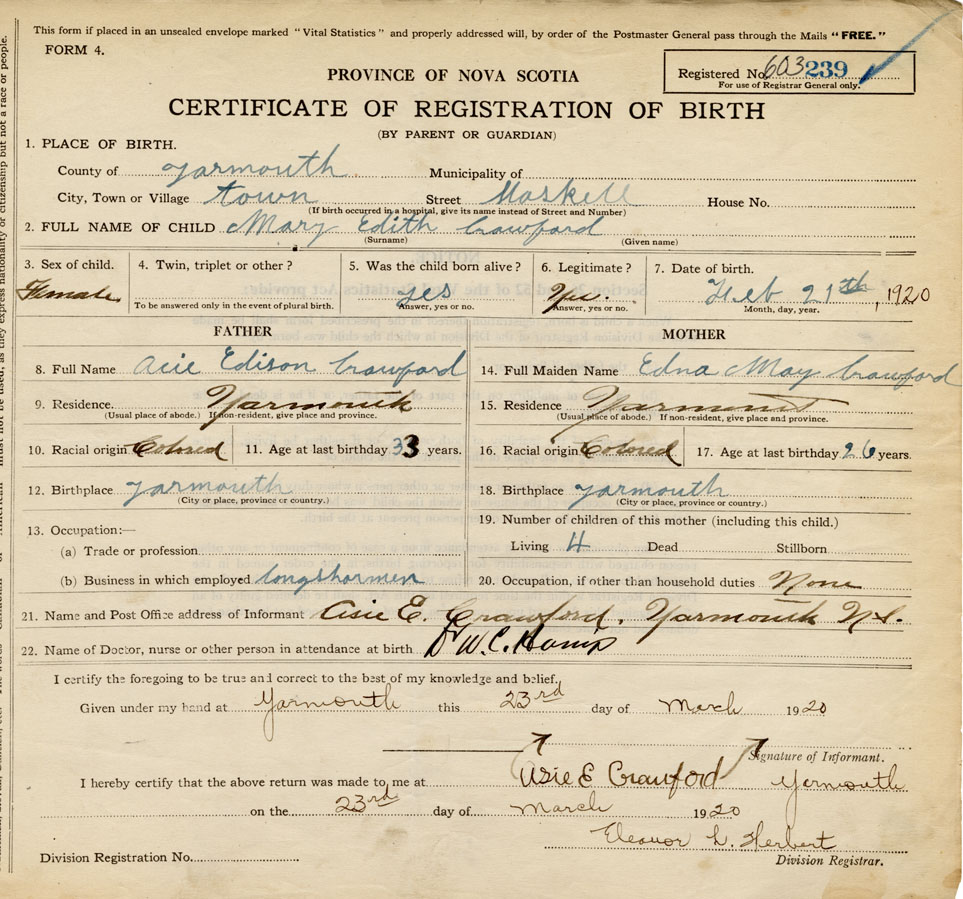 This form if placed in an unsealed envelope marked "Vital Statistics" and properly addressed will, by order of the Postmaster General pass through the Mails "FREE."
FORM 4.
Registered No. 603 239
For use of Registrar General only.
PROVINCE OF NOVA SCOTIA
CERTIFICATE OF REGISTRATION OF BIRTH
(BY PARENT OR GUARDIAN)
1. PLACE OF BIRTH.
County of Yarmouth Municipality of
City, Town or Village town Street Maskell House No.
(If birth occurred in a hospital, give its name instead of Street and Number)
2. FULL NAME OF CHILD Mary Edith Crawford
(Surname) (Given name)
3. Sex of child. 4. Twin, triplet or other? 5. Was the child born alive? 6. Legitimate? 7. Date of birth.
Female yes Yes. Feb 21th, 1920
To be answered only in the event of plural birth. Answer, yes or no. Answer, yes or no. Month, day, year.
FATHER MOTHER
8. Full Name Acie Edison Crawford 14. Full Maiden Name Edna May Crawford
9. Residence. Yarmouth 15. Residence Yarmouth
(Usual place of abode.) If non-resident, give place and province. (Usual place of abode.) If non-resident, give place and province.
10. Racial origin Colored 11. Age at last birthday 33 years. 16. Racial origin Colored 17. Age at last birthday 26 years.
12. Birthplace yarmouth 18. Birthplace yarmouth
(City or place, province or country.) (City or place, province or country.)
13. Occupation:— 19. Number of children of this mother (including this child.)
(a) Trade or profession Living 4 Dead Stillborn
(b) Business in which employed longshormen 20. Occupation, if other than household duties None
21. Name and Post Office address of Informant Asie E. Crawford, Yarmouth N.S.
22. Name of Doctor, nurse or other person in attendance at birth Dr W.C.
I certify the foregoing to be true and correct to the best of my knowledge and belief.
Given under my hand at Yarmouth this 23rd day of March 1920
Signature of Informant.
I hereby certify that the above return was made to me at Asie E Crawford Yarmouth
on the 23rd day of March 1920
Eleanor L. Herbert
Division Registration No. Division Registrar.